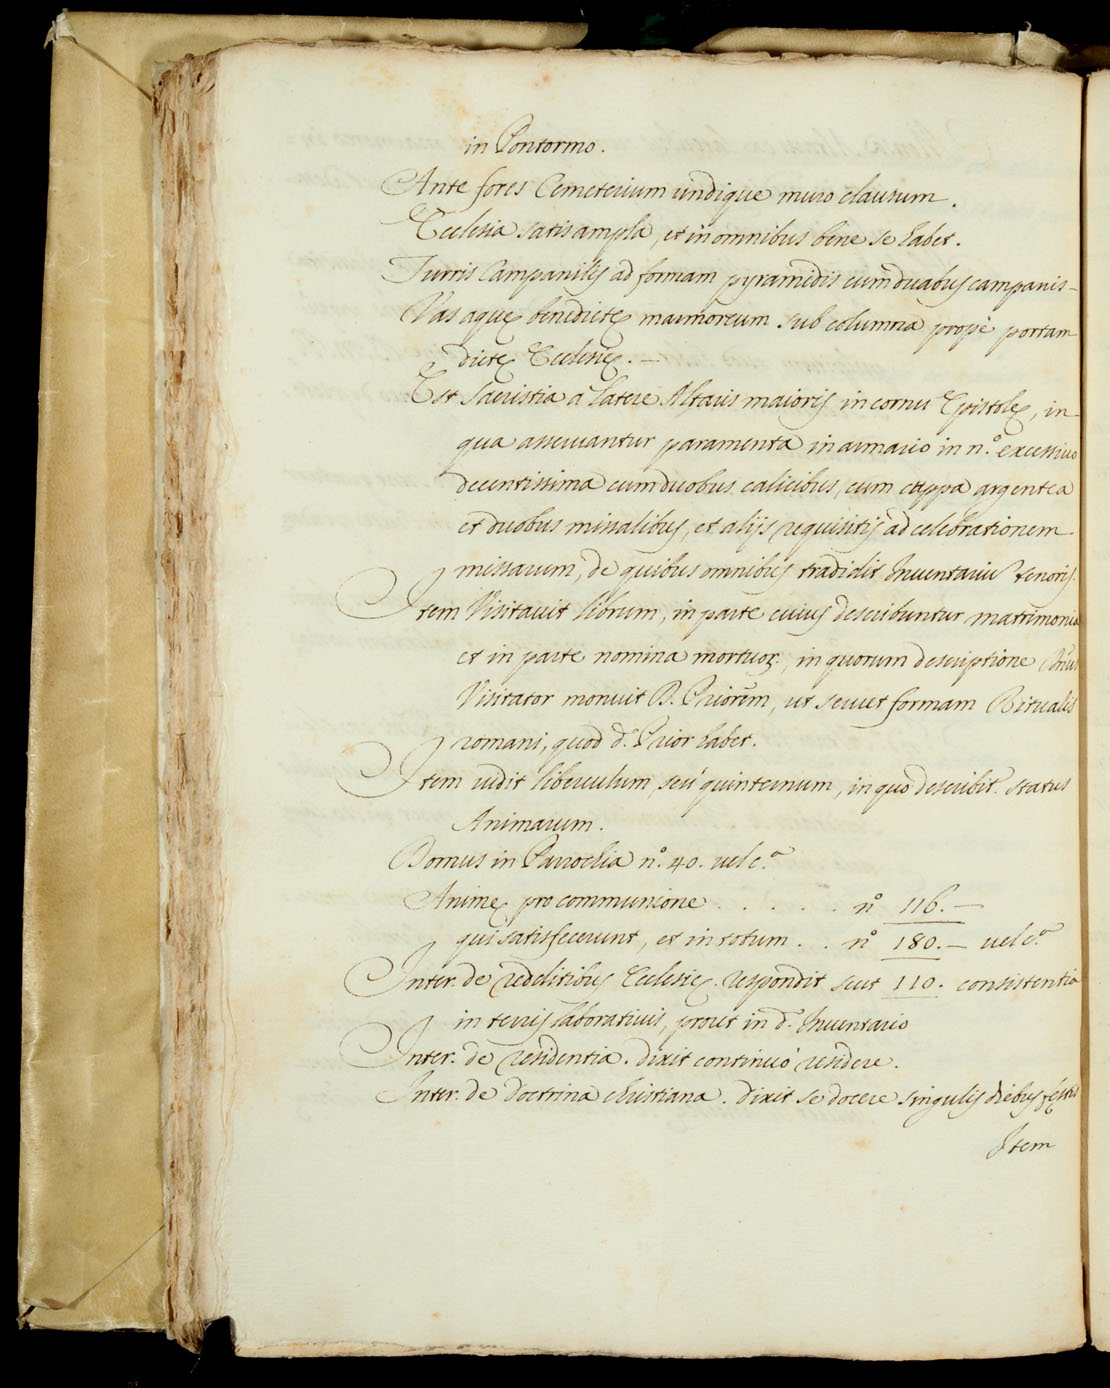 in Pontormo.
Ante fores Cemeterium undique muro clausum.
Ecclesia satis ampla, et in omnibus bene se habet.
Turris Campanilis ad formam pyramidis cum duabus campanis-
Vas aquę benedictę marmoreum sub columna propè portam
dictę Ecclesię. —
Est Sacristia a latere Altaris maioris in cornu Epistolę, in
qua asseruantur paramenta in armario in n.º excessiuo
decentissima cum duobus calicibus, cum cuppa argentea
et duobus missalibus, et alijs requisitis ad celebrationem
missarum, de quibus omnibus tradidit Inuentariũ tenoris.
Item Visitauit librum, in parte cuius describuntur matrimonia
et in parte nomina mortuoꝝ., in quorum descriptione
Visitator monuit D. Priorem, ut seruet formam Ritualis
romani, quod d.º Prior habet.
Item uidit liberculum, seu quinternum, in quo describit. status
Animarum.
Domus in Parrochia n.º 40. uel c.ª
Animę pro communione . . . . . nº 116. —
qui satisfecerunt, et in totum . . nº 180. — uel c.ª
Inter. de redditibus Ecclesię. respondit scut 110. consistentia
in terris laboratiuis, prout in d.º Inuentario
Inter. de residentia. dixit continuò residere.
Inter. de doctrina christiana. dixit se docere singulis diebus festis
Item